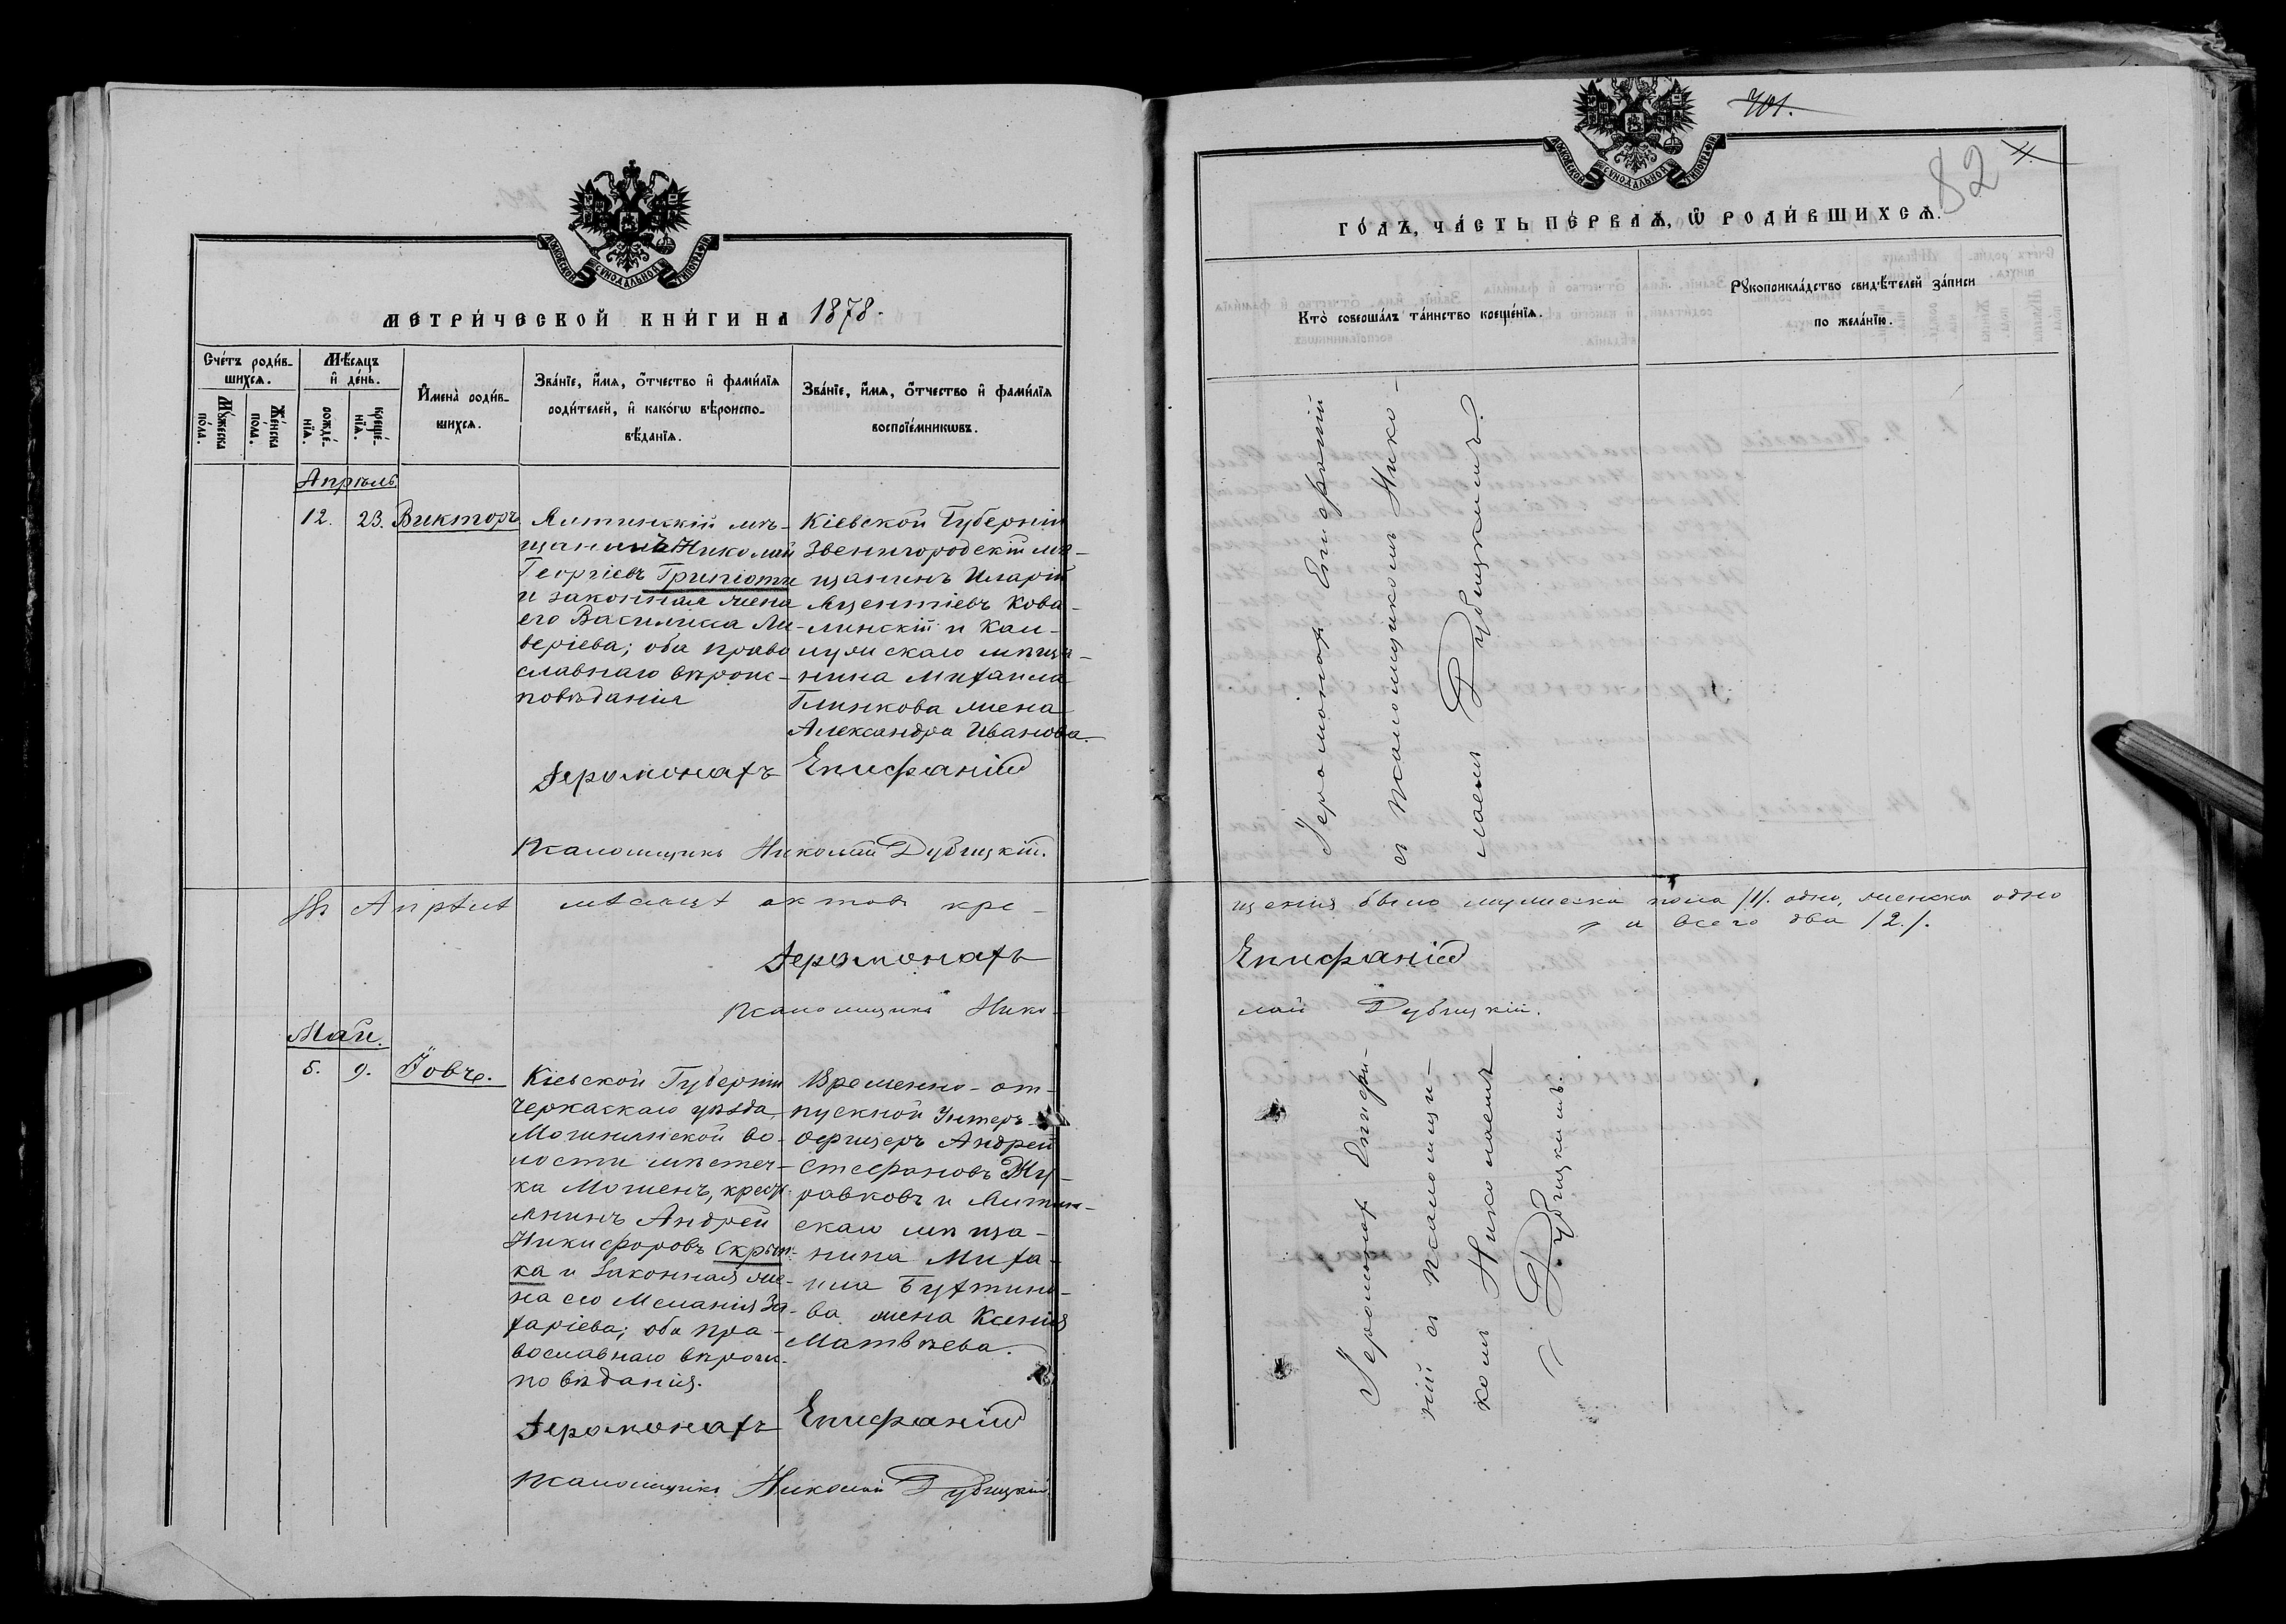 МОСКОВСКОЙ СѴНОДАЛЬНОЙ ТИПОГРАФІИ
МЕТРИ́ЧЕСКОЙ КНИ́ГИ НА 1878.
Сче́тъ роди́в-
шихсѧ.
Мѣ́сѧцъ
и҆ де́нь.
Мꙋ́жеска
по́ла.
Же́нска
по́ла.
рожде́-
нїѧ.
креще́-
нїѧ.
И҆мена̀ роди́в-
шихсѧ.
Зва́нїе, и҆́мѧ, ѻ҆́тчество и҆ фами́лїѧ
роди́телей, и҆ како́гѡ вѣроиспо-
вѣ́данїѧ.
Зва́нїе, и҆́мѧ, ѻ҆́тчество и҆ фами́лїѧ
воспрїе́мникѡвъ.
Апрѣль
12. 23. Викторъ
Ялтинскій мѣ-
щанинъ Николай
Георгіевъ Грипіоти
и законная жена
его Василисса Ли-
веріева; оба право
славнаго вѣроис-
повѣданія
Кіевской Губерніи
Звенигородскій мѣ-
щанинъ Иларій
Авксентіевъ Кова-
линскій и Кал-
лужскаго мѣща-
нина Михаила
Глинкова жена
Александра Иванова.
Іеромонахъ Епифаній
Псаломщикъ Николай Дубицкій.
Въ Апрѣлѣ мѣсяцѣ актовъ кре-
Іеромонахъ
Псаломщикъ Нико-
Май.
5. 9. Іовъ.
Кіевской Губерніи
Черкаскаго уѣзда
Мошнянской во-
лости мѣстеч-
ка Мошенъ, кресть
янинъ Андрей
Никифоровъ Скрып-
ка и законная же-
на его Меланія За-
харіева; оба пра-
вославнаго вѣроис-
повѣданія.
Временно-от-
пускной Унтеръ-
офицеръ Андрей
Стефановъ Жу-
равковъ и Ялтин-
скаго мѣща-
нина Миха-
ила Бухтино-
ва жена Ксенія
Матвѣева.
Іеромонахъ Епифаній
Псаломщикъ Николай Дубицкій.
701.
82
МОСКОВСКОЙ СѴНОДАЛЬНОЙ ТИПОГРАФІИ
ГО́ДЪ, ЧА́СТЬ ПЕ́РВАѦ, Ѿ РОДИ́ВШИХСѦ.
Кто̀ соверша́лъ та́инство креще́нїѧ.
Рꙋкоприкла́дство свидѣ́телей за́писи
по жела́нїю.
Іеромонах Епифаній
съ псаломщиком Нико-
лаемъ Дубицкимъ.
щенія было мужеска пола /1/. одно, женска одно
и всего два /2./.
Епифаній
лай Дубицкій.
Іеромонах Епифа-
ній съ псаломщи-
комъ Николаемъ
Дубицкимъ.